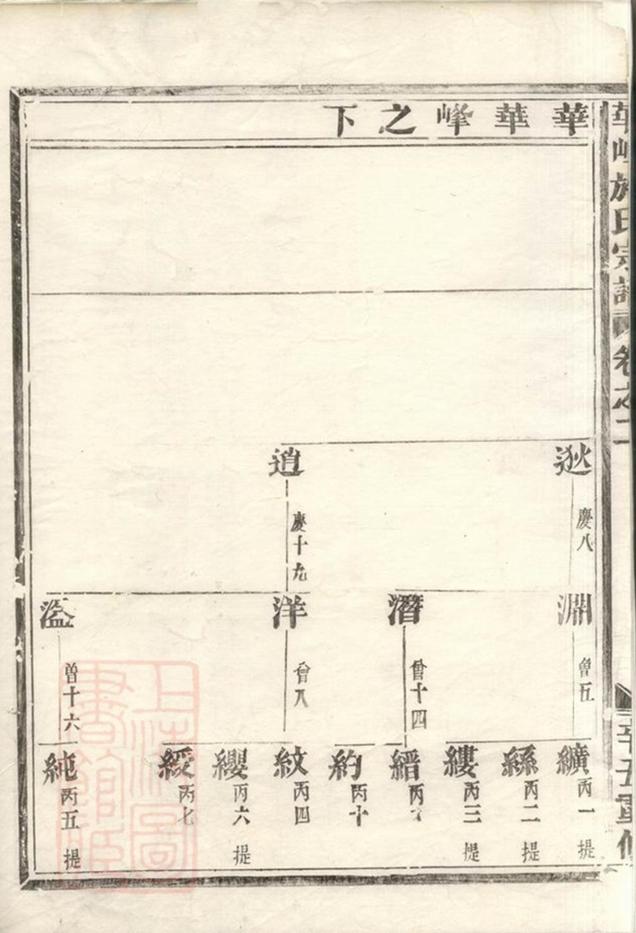 華峰施氏宗譜 卷之二
辛五重修
華華峰之下
逖 慶八
逍 慶十九
淵 曾五
潛 曾十四
洋 曾八
溢 曾十六
纊 丙一 提
繇 丙二 提
縷 丙三 提
縉
約 丙十
紋 丙四
纓 丙六 提
綬 丙七
純 丙五 提
上海圖書館藏